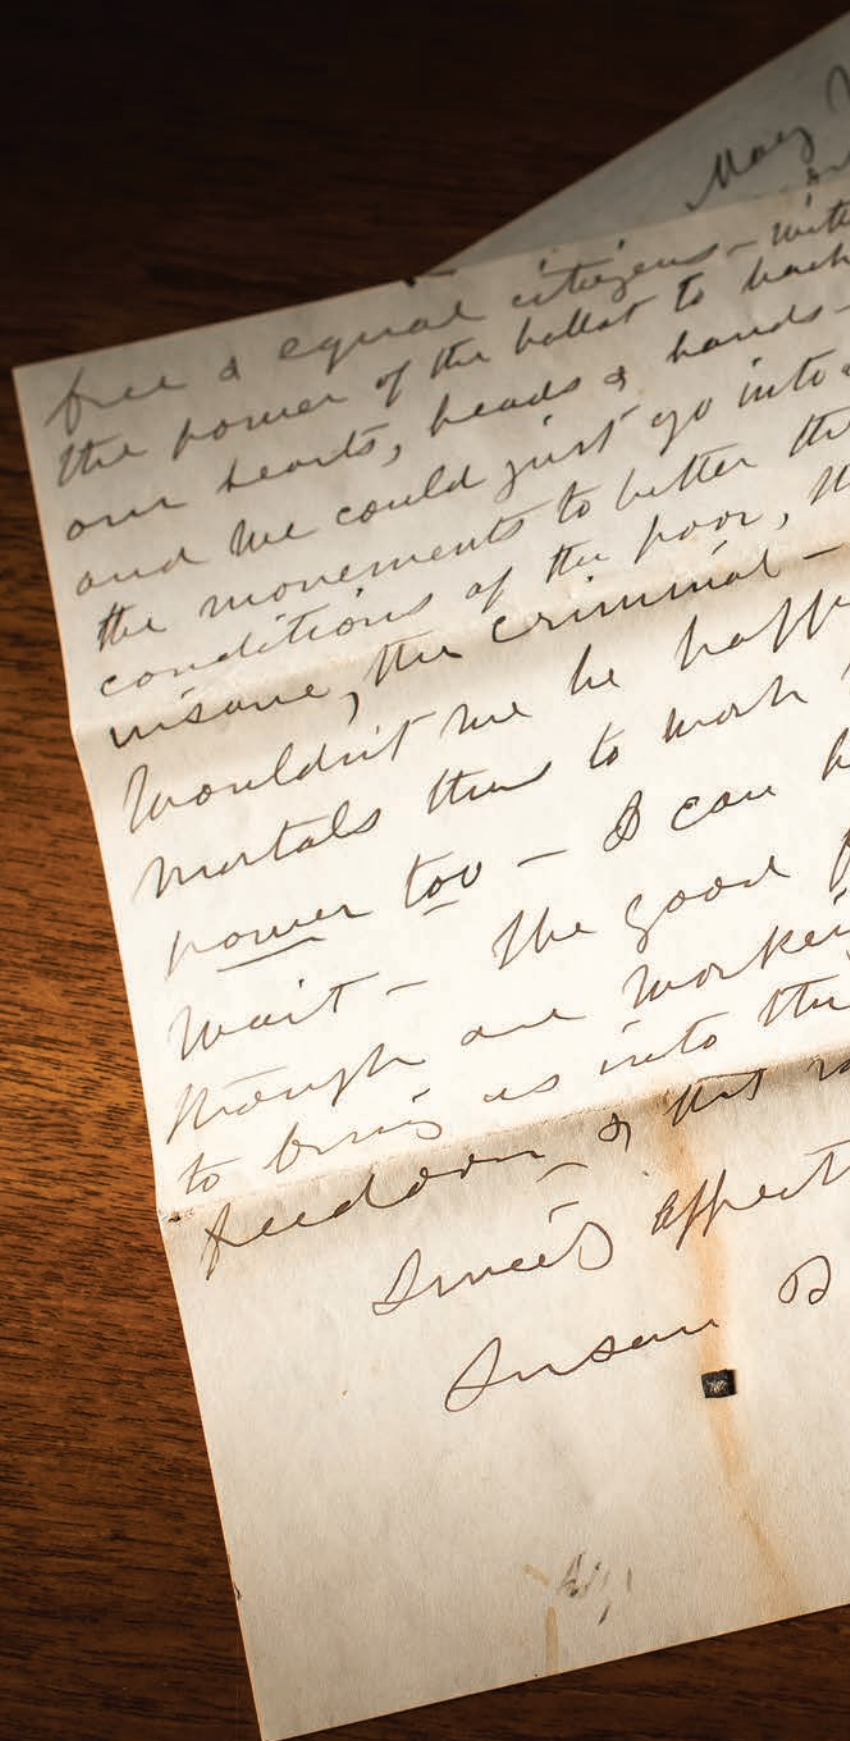 May
free & equal citizens – with
the power of the ballot to back
our hearts, heads & hands –
and we could just go into
the movements to better the
conditions of the poor, the
insane, the criminal –
Wouldn't we be happ
mortals thus to work
power too – I can h
wait – The good
though are workin
to bring us into the
freedom – & that
Sincely Affect
Susan B